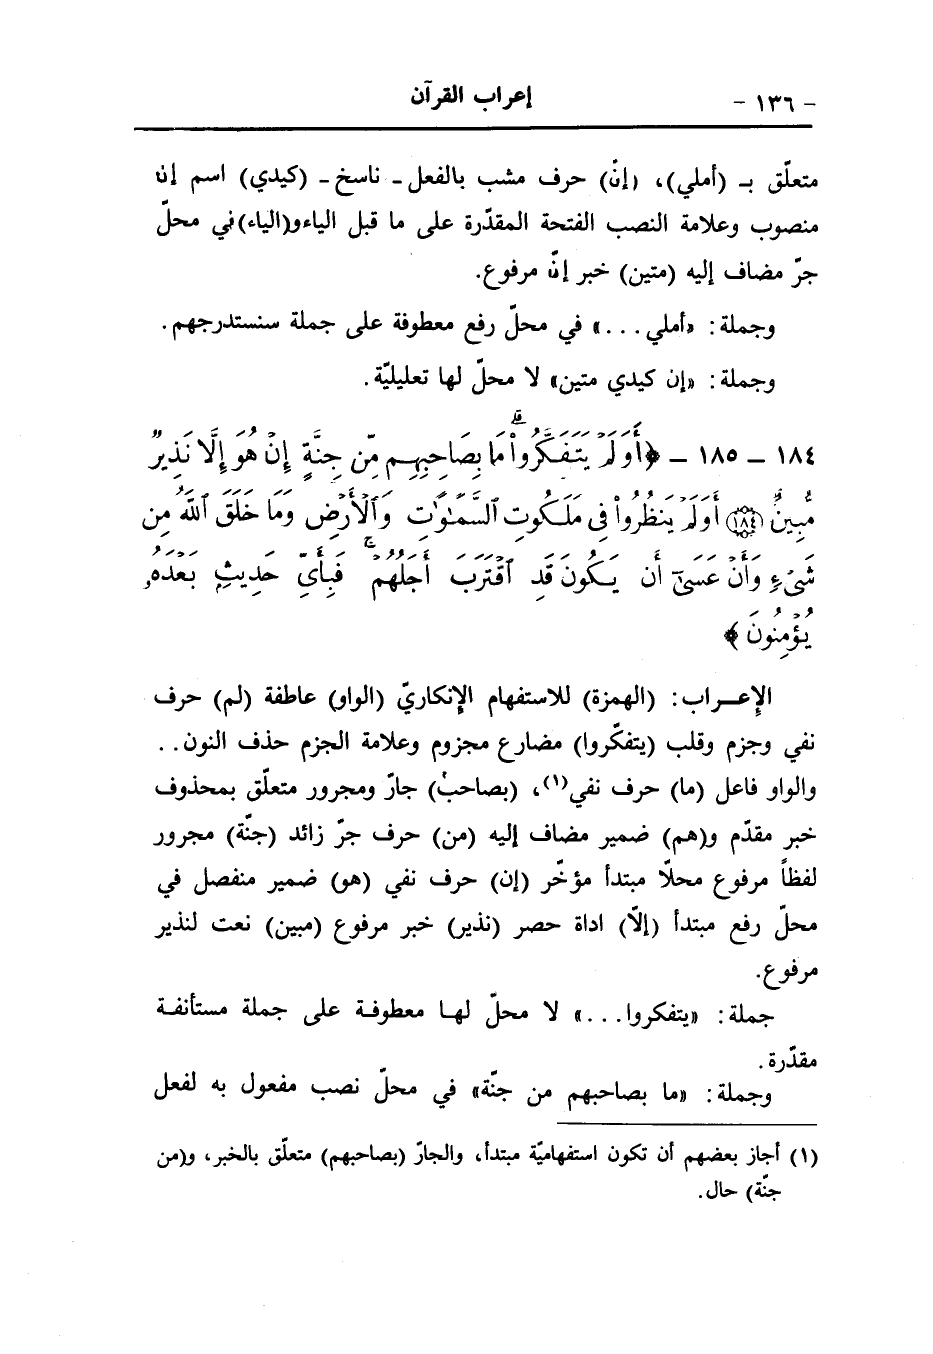 إعراب القرآن - ١٣٦ -
متعلّق بـ (أملي)، (إنّ) حرف مشب بالفعل - ناسخ - (كيدي) اسم إن
منصوب وعلامة النصب الفتحة المقدّرة على ما قبل الياءو(الياء)في محلّ
جرّ مضاف إليه (متين) خبر إنّ مرفوع.
وجملة: «أملي...» في محلّ رفع معطوفة على جملة سنستدرجهم.
وجملة: «إن كيدي متين» لا محلّ لها تعليليّة.
١٨٤ - ١٨٥ - ﴿أَوَلَمْ يَتَفَكَّرُوا۟ ۗ مَا بِصَاحِبِهِم مِّن جِنَّةٍ إِنْ هُوَ إِلَّا نَذِيرٌ
مُّبِينٌ ﴿١٨٤﴾ أَوَلَمْ يَنظُرُوا۟ فِى مَلَكُوتِ ٱلسَّمَٰوَٰتِ وَٱلْأَرْضِ وَمَا خَلَقَ ٱللَّهُ مِن
شَىْءٍ وَأَنْ عَسَىٰٓ أَن يَكُونَ قَدِ ٱقْتَرَبَ أَجَلُهُمْ ۖ فَبِأَىِّ حَدِيثٍۭ بَعْدَهُۥ
يُؤْمِنُونَ﴾
الإعـــراب: (الهمزة) للاستفهام الإنكاريّ (الواو) عاطفة (لم) حرف
نفي وجزم وقلب (يتفكّروا) مضارع مجزوم وعلامة الجزم حذف النون..
والواو فاعل (ما) حرف نفي(١)، (بصاحب) جارّ ومجرور متعلّق بمحذوف
خبر مقدّم و(هم) ضمير مضاف إليه (من) حرف جرّ زائد (جنّة) مجرور
لفظاً مرفوع محلّا مبتدأ مؤخّر (إن) حرف نفي (هو) ضمير منفصل في
محلّ رفع مبتدأ (إلّا) اداة حصر (نذير) خبر مرفوع (مبين) نعت لنذير
مرفوع.
جملة: «يتفكروا...» لا محلّ لهـا معطوفـة على جملة مستأنفـة
مقدّرة.
وجملة: «ما بصاحبهم من جنّة» في محلّ نصب مفعول به لفعل
(١) أجاز بعضهم أن تكون استفهاميّة مبتدأ، والجارّ (بصاحبهم) متعلّق بالخبر، و(من
جنّة) حال.